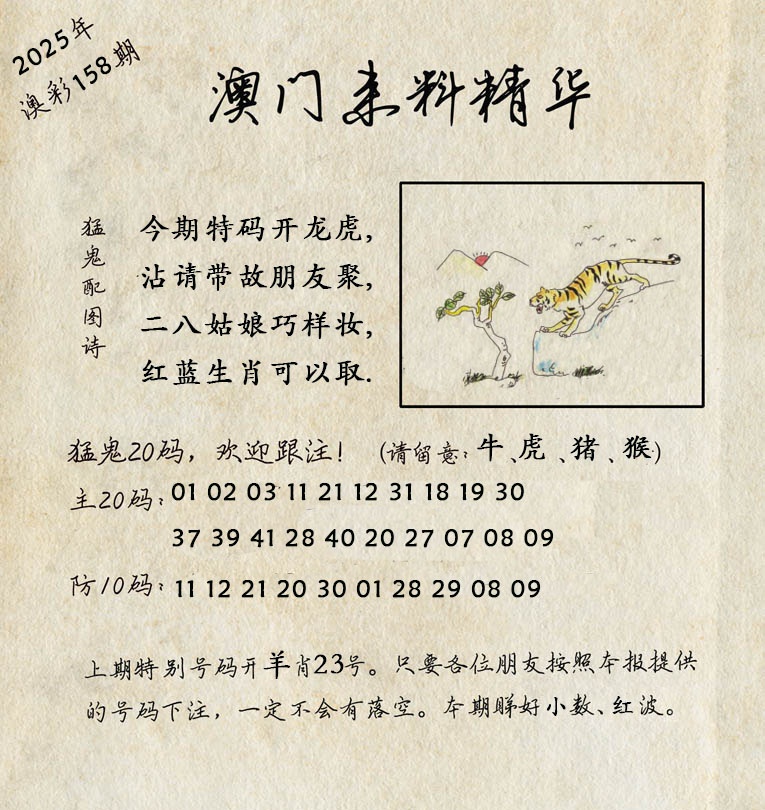 2025年
澳彩158期
澳门来料精华
猛鬼配图诗
今期特码开龙虎,
沾请带故朋友聚,
二八姑娘巧样妆,
红蓝生肖可以取.
猛鬼20码，欢迎跟注！ (请留意：牛、虎、猪、猴)
主20码：01 02 03 11 21 12 31 18 19 30
37 39 41 28 40 20 27 07 08 09
防10码：11 12 21 20 30 01 28 29 08 09
上期特别号码开羊肖23号。只要各位朋友按照本报提供
的号码下注，一定不会有落空。本期睇好小数、红波。